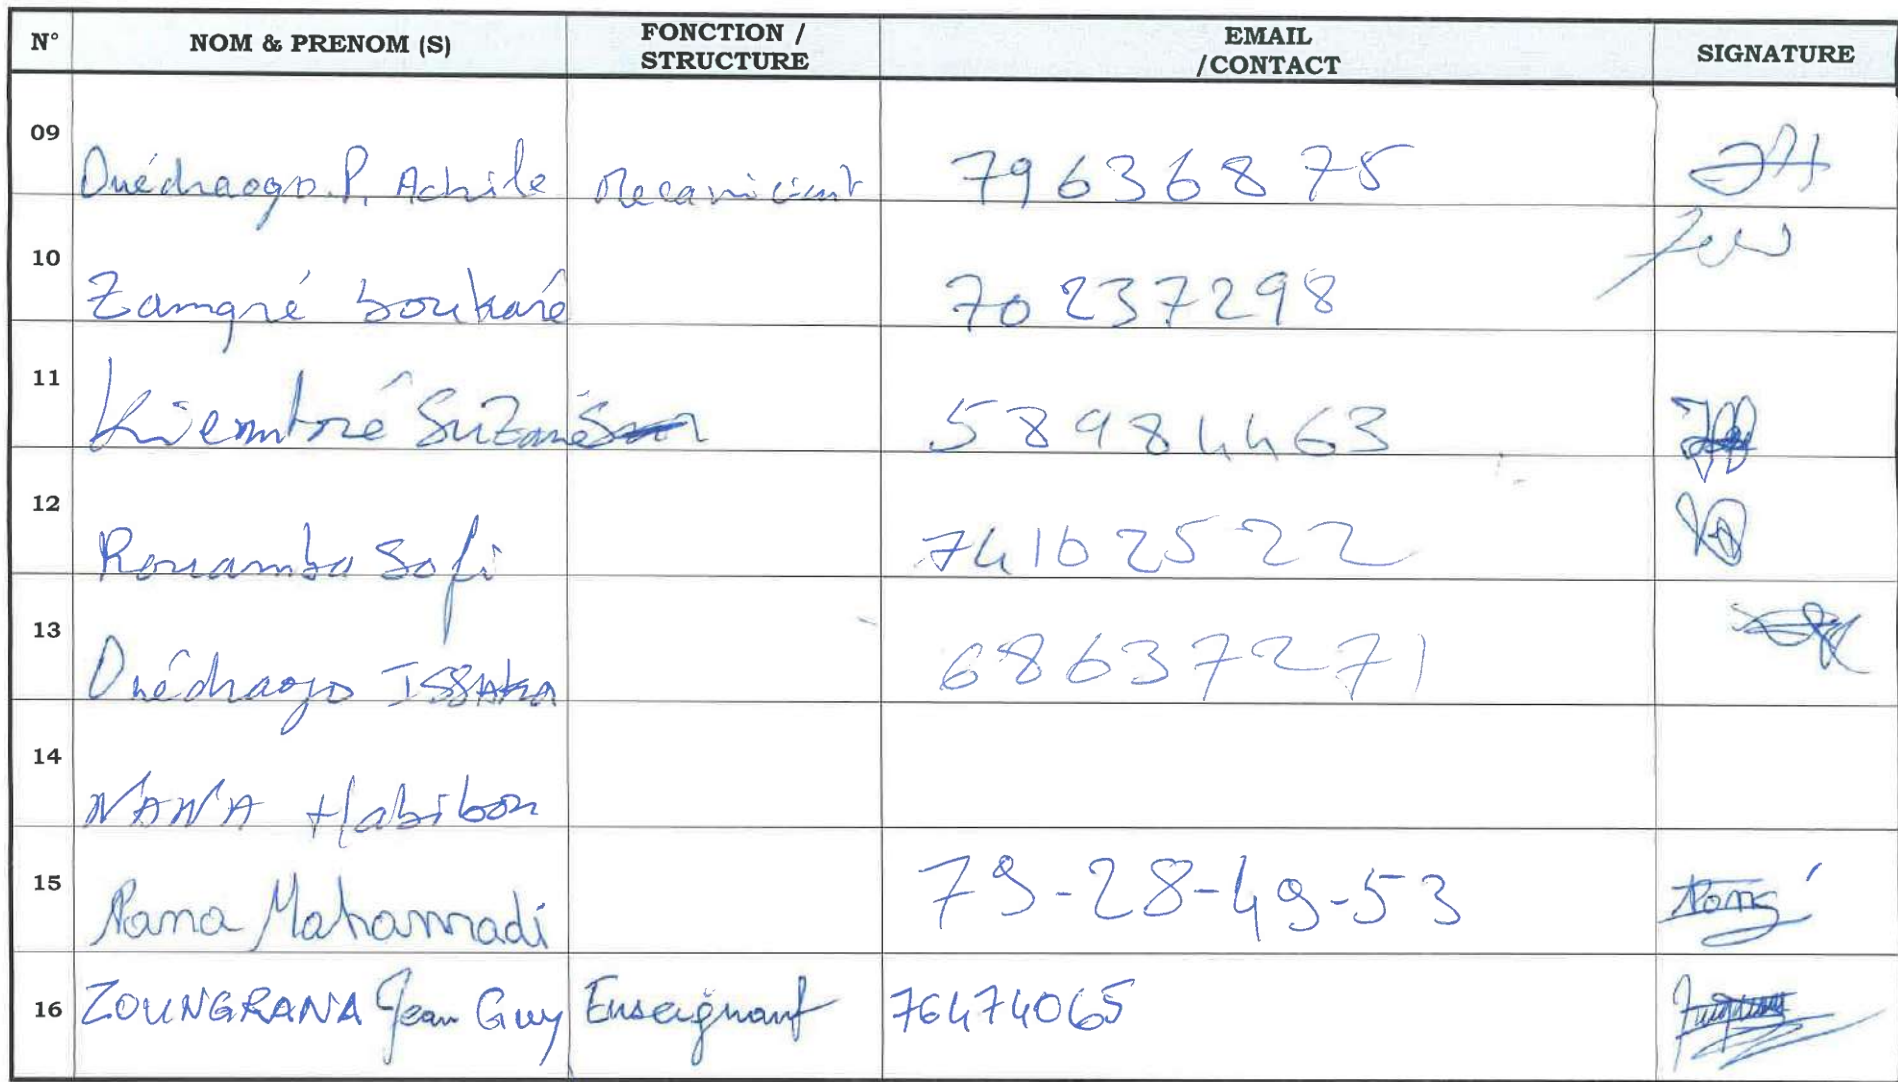 N° NOM & PRENOM (S) FONCTION / STRUCTURE EMAIL /CONTACT SIGNATURE
09 Ouédraogo.P. Achile Mecanicient 79636875
10 Zamgré boukaré 70237298
11 Kiemtoré Suzane 58984463
12 Rouamba Sofi 74102522
13 Ouédraogo ISSAKA 68637271
14 NANA Habibou
15 Nana Mahamadi 79-28-49-53
16 ZOUNGRANA Jean Guy Enseignant 76474065